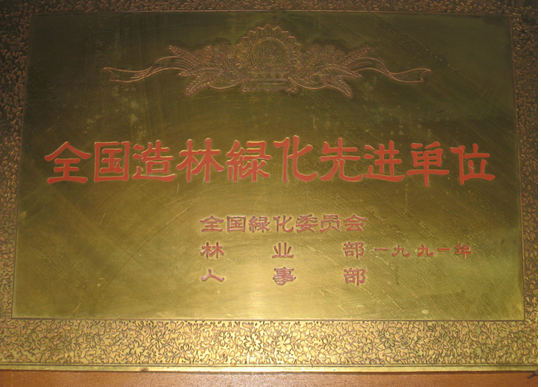 全国造林緑化先进单位
全国緑化委员会
林业部 一九九一年
人事部